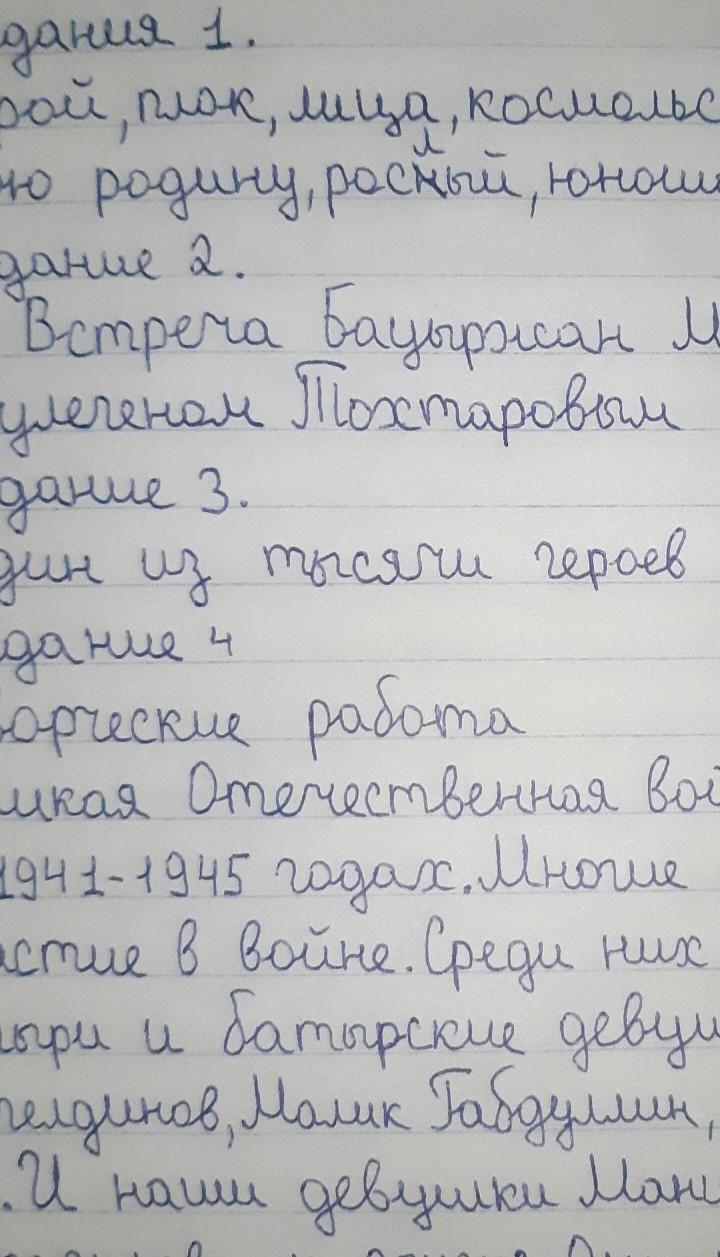 дания 1.
рой, плок, лица, космольс
ню родину, рослый, юнош
дание 2.
Встреча Бауыржан М
улегеном Тохтаровым
дание 3.
дин из тысячи героев
дание 4
орческие работа
икая Отечественная вой
1941-1945 годах. Многие
астие в войне. Среди них
ыри и батырские девуш
гелдинов, Малик Габдуллин,
. И наши девушки Ман